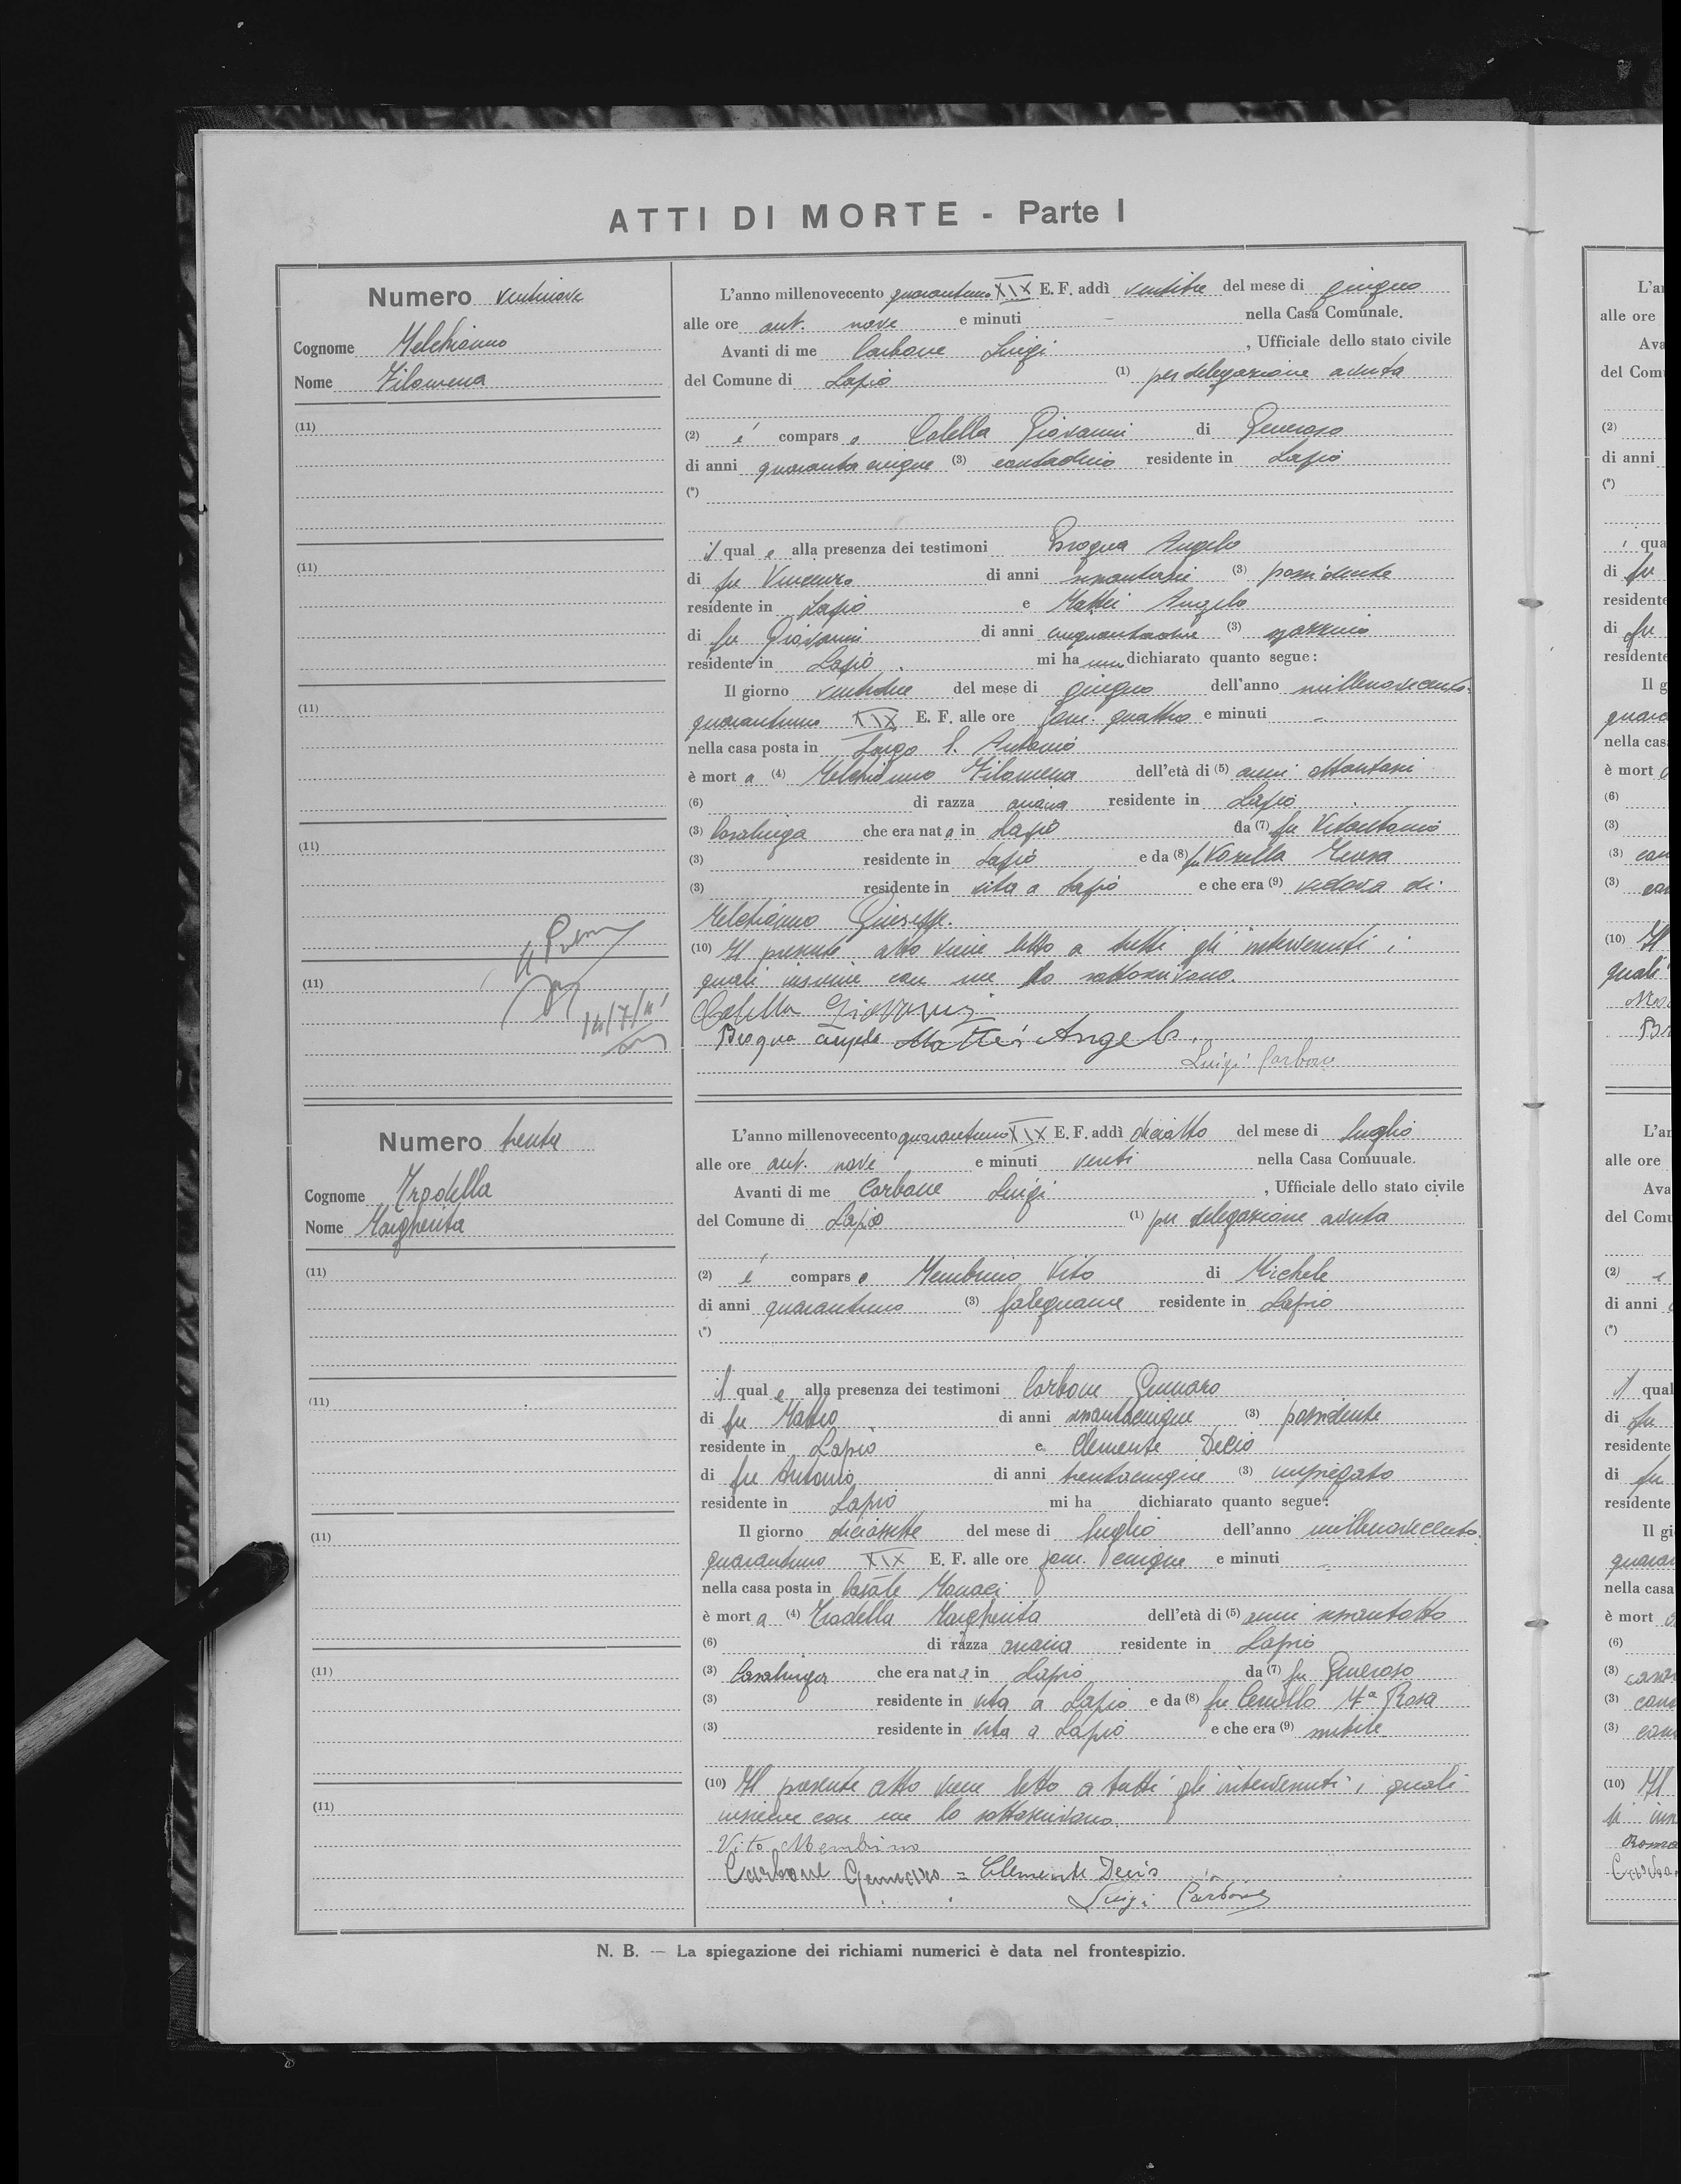 ATTI DI MORTE - Parte I
Numero ventinove
Cognome Melchionno
Nome Filomena
(11)
(11)
(11)
(11)
(11)
L'anno millenovecento quarantuno XIX E. F. addì ventitre del mese di giugno
alle ore ant. nove e minuti - nella Casa Comunale.
Avanti di me Carbone Luigi, Ufficiale dello stato civile
del Comune di Lapio (1) per delegazione avuta
(2) è compars o Colella Giovanni di Generoso
di anni quarantacinque (3) contadino residente in Lapio
(*)
il qual e alla presenza dei testimoni Brogna Angelo
di fu Vincenzo di anni sessantasei (3) possidente
residente in Lapio e Mattei Angelo
di fu Giovanni di anni cinquantadue (3) spazzino
residente in Lapio. mi ha dichiarato quanto segue:
Il giorno ventidue del mese di giugno dell'anno millenovecento-
quarantuno XIX E. F. alle ore pom. quattro e minuti -
nella casa posta in Largo S. Antonio
è mort a (4) Melchionno Filomena dell'età di (5) anni ottantasei
(6) di razza ariana residente in Lapio
(3) Casalinga che era nat a in Lapio da (7) fu Vitantonio
(3) residente in Lapio e da (8) fu
(3) residente in vita a Lapio e che era (9) vedova di
Melchionno Giuseppe.
(10) Il presente atto viene letto a tutti gli intervenuti i
quali insieme con me lo sottoscrivono.
Colella Giovanni
Brogna Angelo Mattei Angelo.
Luigi Carbone
Numero trenta
Cognome Trodella
Nome Margherita
(11)
(11)
(11)
(11)
(11)
L'anno millenovecento quarantuno XIX E. F. addì diciotto del mese di luglio
alle ore ant. nove e minuti venti nella Casa Comuuale.
Avanti di me Carbone Luigi, Ufficiale dello stato civile
del Comune di Lapio (1) per delegazione avuta
(2) è compars o Membrino Vito di Michele
di anni quarantuno (3) falegname residente in Lapio
(*)
il qual e alla presenza dei testimoni Carbone Gennaro
di fu Matteo di anni sessantacinque (3) possidente
residente in Lapio e Clemente Decio
di fu Antonio di anni trentacinque (3) impiegato
residente in Lapio mi ha dichiarato quanto segue:
Il giorno diciassette del mese di luglio dell'anno millenovecento
quarantuno XIX E. F. alle ore pom. cinque e minuti -
nella casa posta in Casale Monaci
è mort a (4) Trodella Margherita dell'età di (5) anni sessantotto
(6) di razza ariana residente in Lapio
(3) Casalinga che era nat a in Lapio da (7) fu Generoso
(3) residente in vita a Lapio e da (8) fu Cerullo Ma Rosa
(3) residente in vita a Lapio e che era (9) nubile
(10) Il presente atto viene letto a tutti gli intervenuti i quali
insieme con me lo sottoscrivono.
Vito Membrino
Carbone Gennaro = Clemente Decio
Luigi Carbone
N. B. — La spiegazione dei richiami numerici è data nel frontespizio.